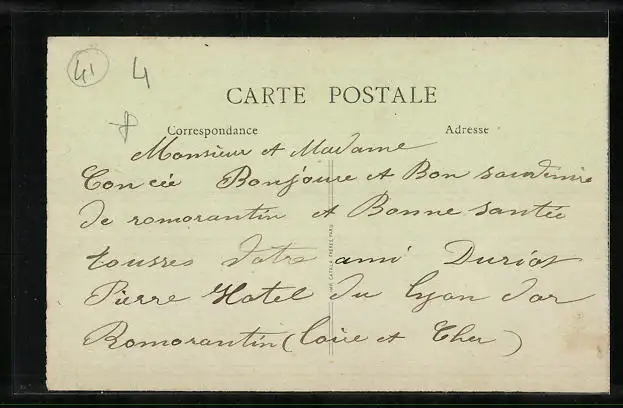 41 4
CARTE POSTALE
Correspondance Adresse
Monsieur et Madame
Concée Bonjoure et Bon souvdenire
de romorantin et Bonne santée
tousses Votre ami Duriot
Pierre Hotel du lyon dor
Romorantin (loire et Cher)
IMP. CATALA FRÈRES, PARIS